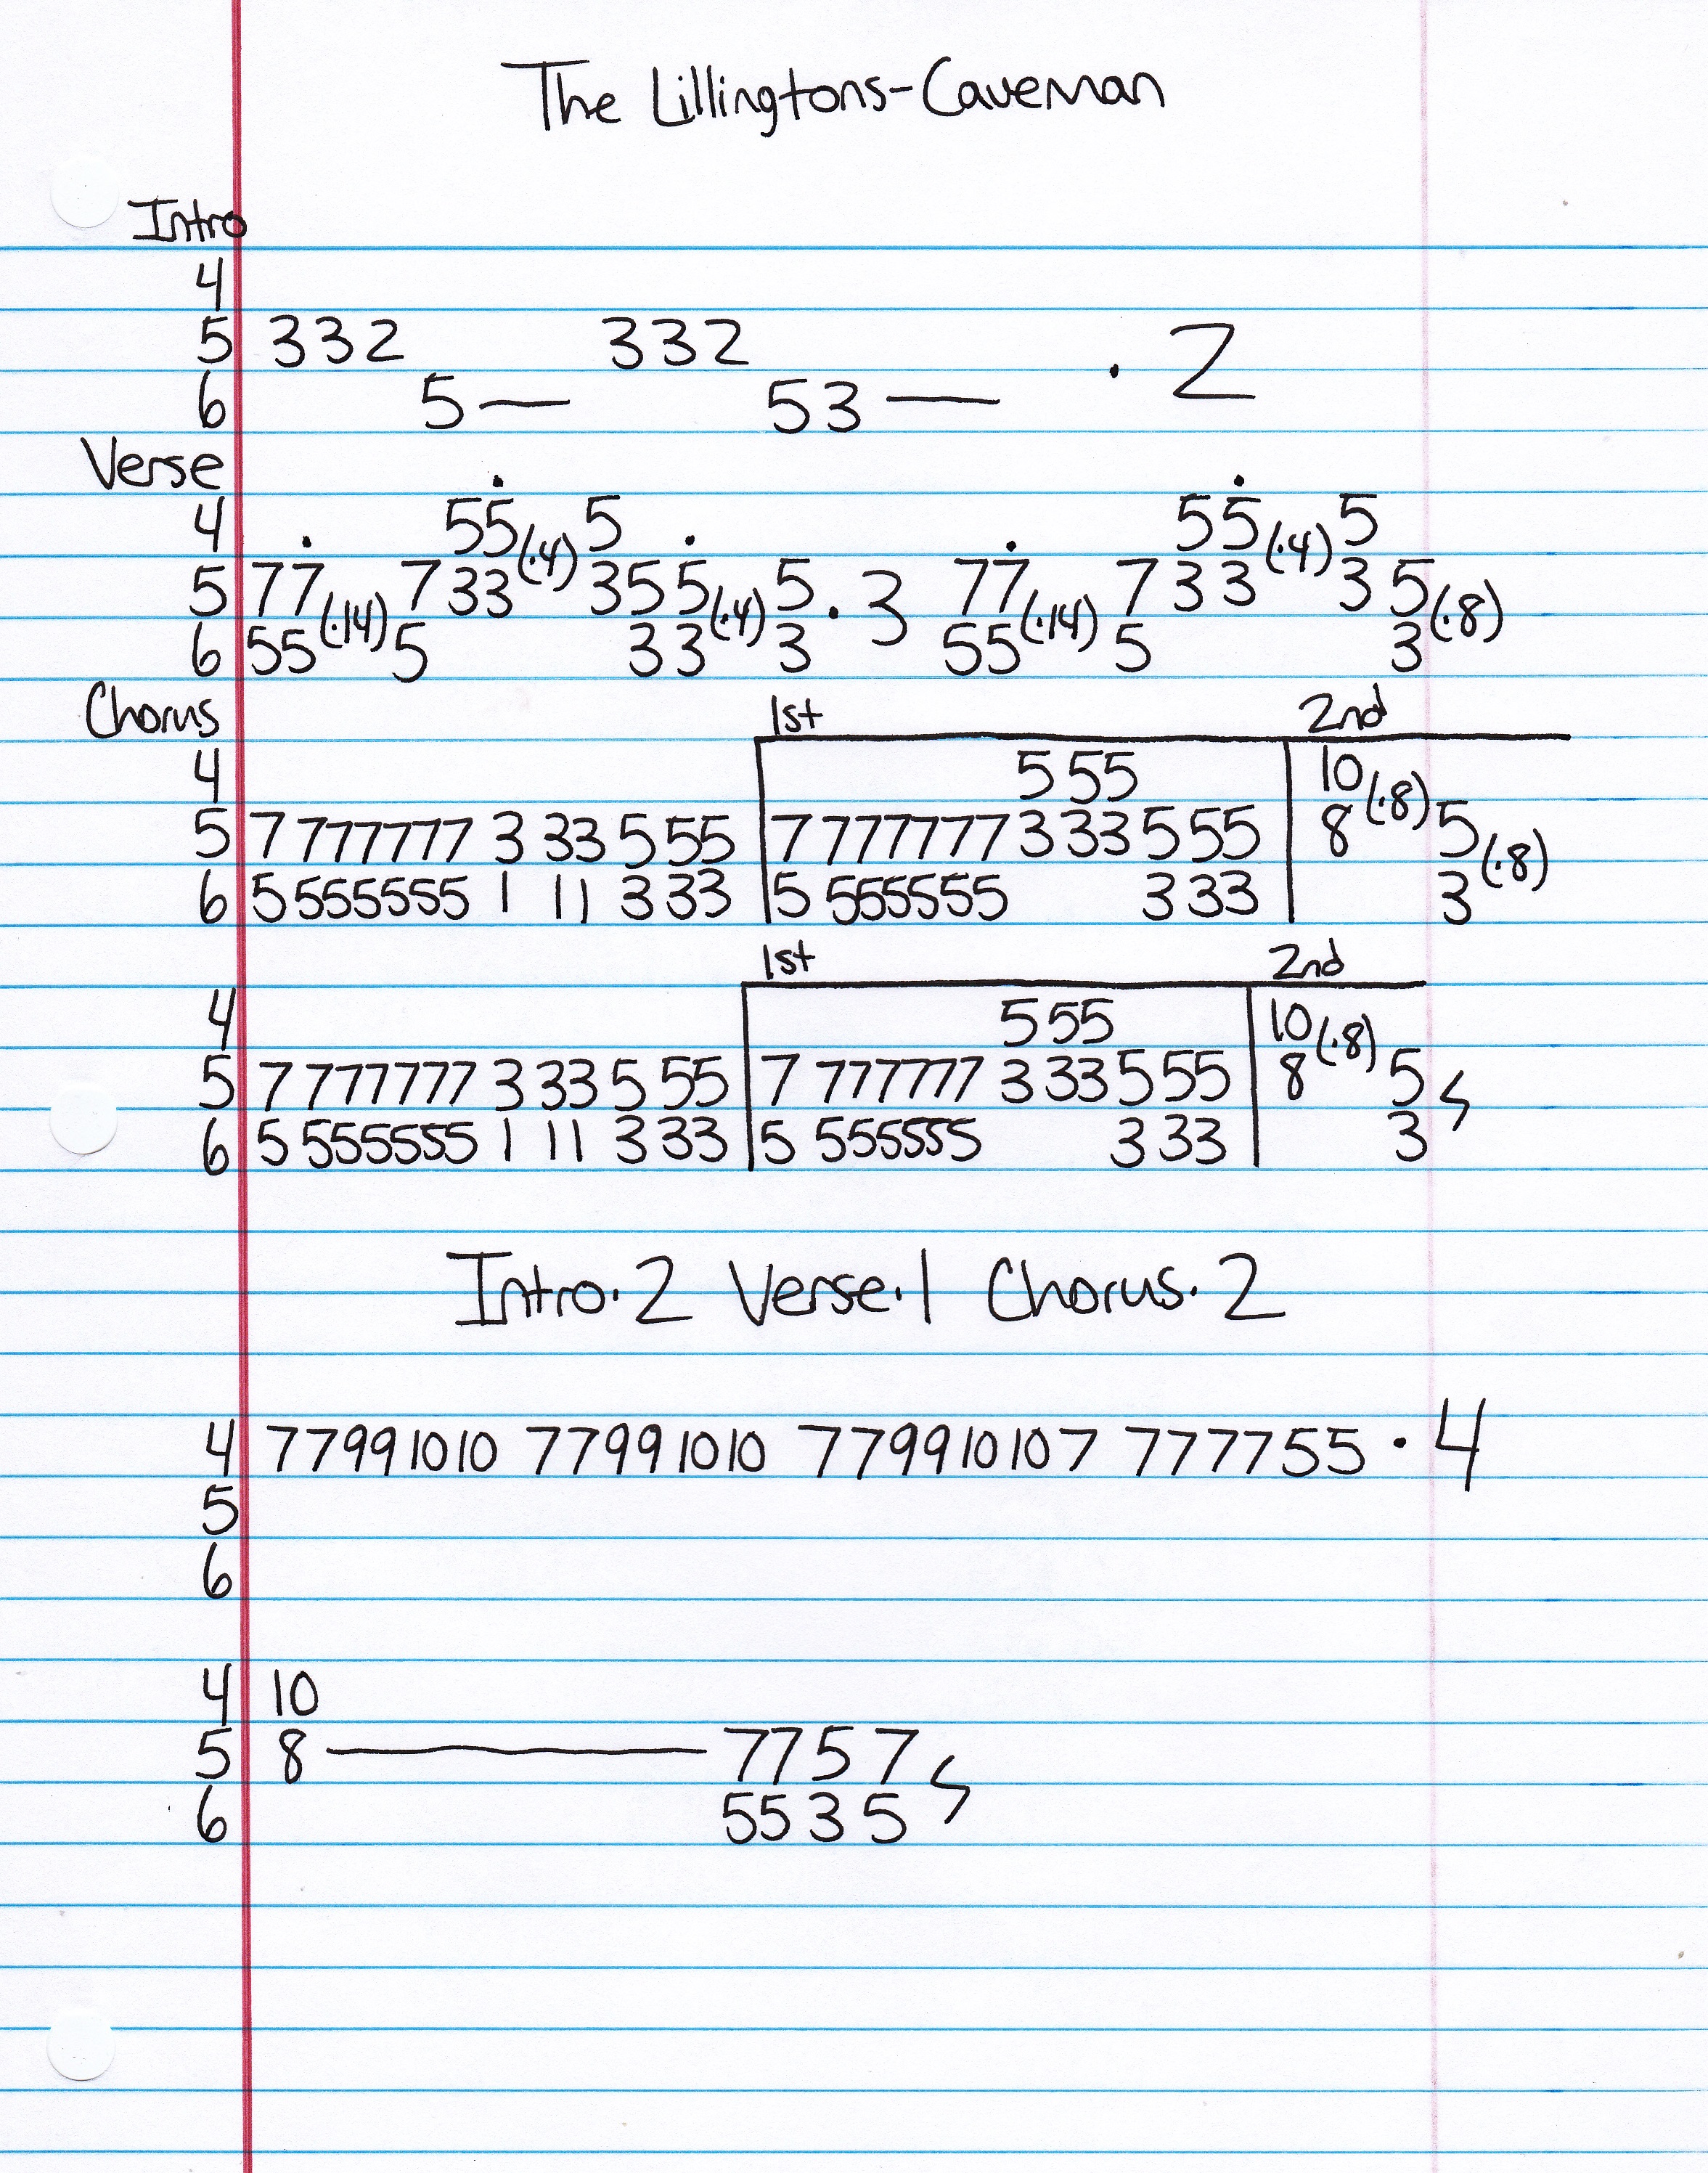 The Lillingtons-Caveman
Intro
4
5 332 332 · 2
6 5— 53 —
Verse
4 55(·4) 5 55(·4) 5
5 77(·14) 7 33 355(·4) 5 · 3 77(·14) 7 33 3 5(·8)
6 55 5 33 3 55 5 3
Chorus 1st 2nd
4 5 55 10(·8)
5 7 777777 3 33 5 55 7 777777 3 33 5 55 8 5(·8)
6 5 555555 1 11 3 33 5 555555 3 33 3
1st 2nd
4 5 55 10(·8)
5 7 777777 3 33 5 55 7 777777 3 33 5 55 8 5
6 5 555555 1 11 3 33 5 555555 3 33 3
Intro·2 Verse·1 Chorus·2
4 77991010 77991010 779910107 777755 · 4
5
6
4 10
5 8 — 7757
6 5535